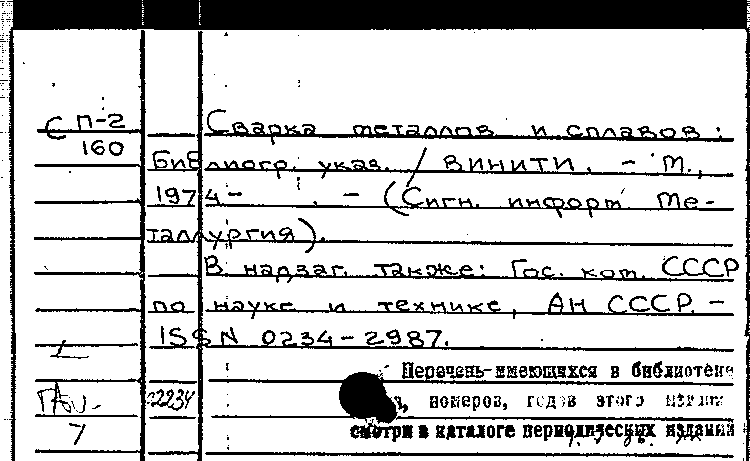 С П-2
160
Сварка металлов и сплавов:
Библиогр. указ. / ВИНИТИ. - М.,
1974- . - (Сигн. информ. Ме-
таллургия).
В надзаг. также: Гос. ком. СССР
по науке и технике, АН СССР. -
ISSN 0234-2987.
Перечень имеющихся в библиотеке
номеров, годов этого
смотри в каталоге периодических изданий
7